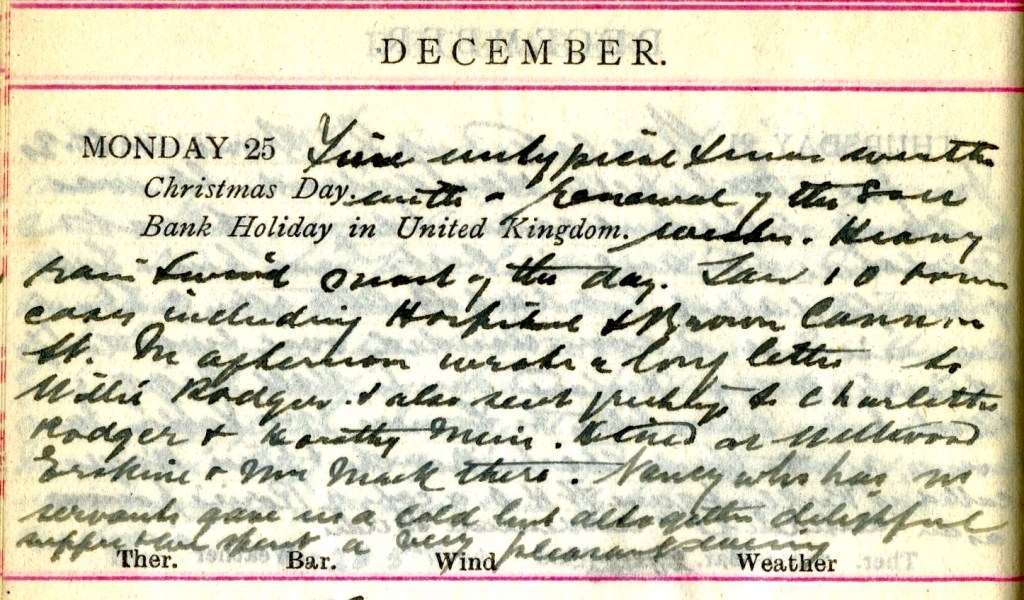 DECEMBER.
MONDAY 25 untypical Xmas weather
Christmas Day. with a renewal of the East
Bank Holiday in United Kingdom. winds. Heavy
rain & wind most of the day. Saw 10 town
cases including Hospital & Brown Cannon
St. In afternoon wrote a long letter to
Willie Rodger & also sent greetings to Charlotte
Rodger & Dorothy Muir. Dined at Millwood
Erskine & Mrs Mack there. Nancy who has no
servants gave us a cold but altogether delightful
supper & we spent a very pleasant evening
Ther. Bar. Wind Weather